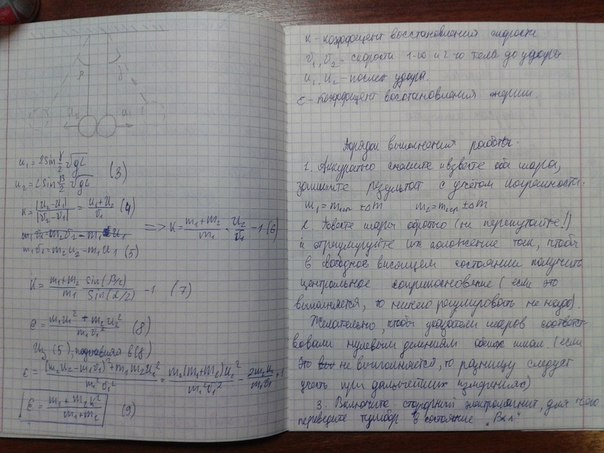 u₁ = 2 sin γ/2 √gL
u₂ = 2 sin β/2 √gL (3)
K = |u₂-u₁| / |v₁-v₂| = u₁+u₂ / v₁ (4)
m₁v₁ = m₂u₂ - m₁u₁ (5)
=> K = m₁+m₂ / m₁ · u₂/v₁ - 1 (6)
K = m₁+m₂ / m₁ · sin(β/2) / sin(α/2) - 1 (7)
ε = m₁u₁² + m₂u₂² / m₁v₁² (8)
(5), в (8)
ε = (m₂u₂ - m₁v₁)² + m₁m₂u₂² / m₁²v₁² = m₂(m₁+m₂)u₂² / m₁²v₁² - 2m₂u₂ / m₁v₁ + 1
ε = m₁ + m₂K² / m₁+m₂ (9)
K - коэффициент восстановления скорости
v₁, v₂ - скорости 1-го и 2-го тела до удара
u₁, u₂ - после удара
ε - коэффициент восстановления энергии
Порядок выполнения работы.
1. Аккуратно снимите и взвесте оба шара,
запишите результат с учётом погрешности.
m₁ = ± Δm m₂ = ± Δm
2. шары обратно (не перепутайте!)
и отрегулируйте их положение так, чтобы
в свободно висящем состоянии получить
центральное соприкосновение (если это
выполняется, то ничего регулировать не надо).
Желательно чтобы указатели шаров соответст-
вовали нулевым делениям обоих шкал. (если
это не выполняется, то разницу следует
учесть при дальнейших измерениях)
3. Включите стопорный электромагнит, для чего
переведите тумблер в состояние "Вкл"